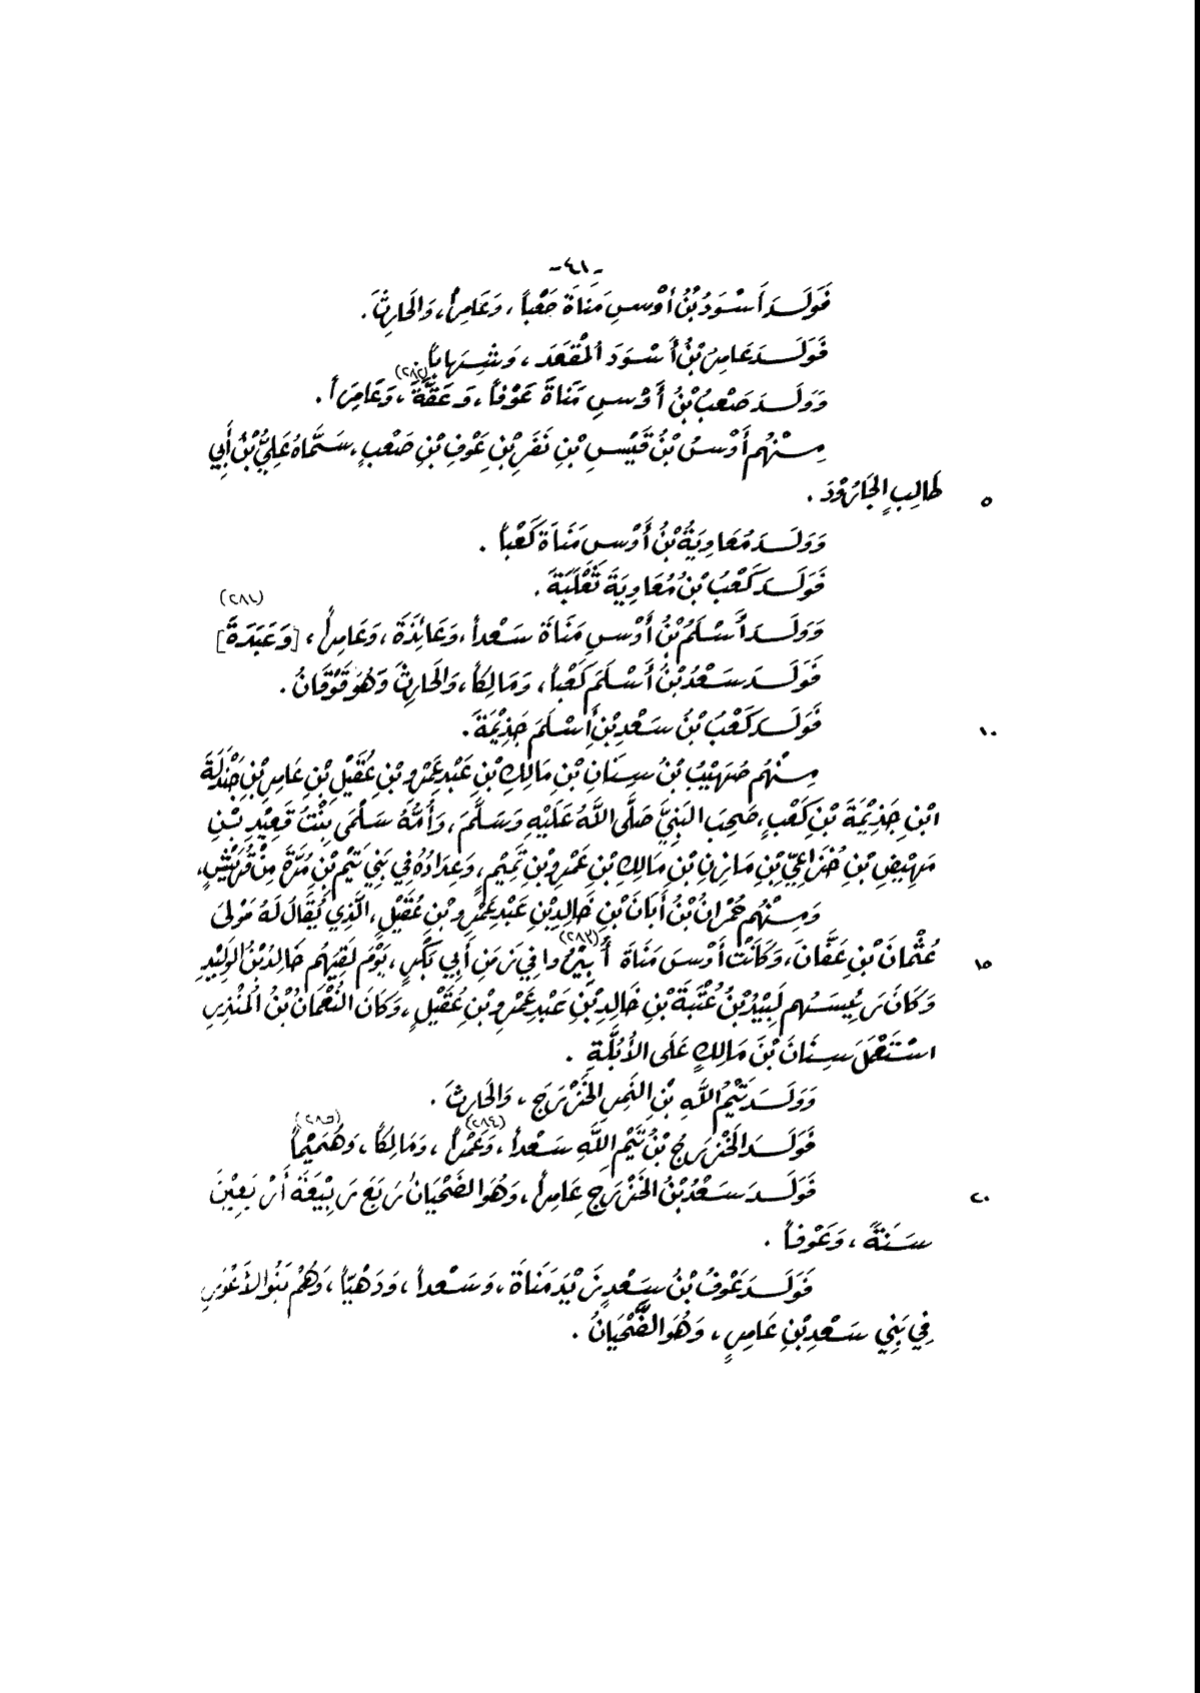 -٤١-
فَوَلَدَ أَسْوَدُ بْنُ أَوْسِ مَنَاةَ جَعْباً، وَعَامِراً، وَالحَارِثَ.
فَوَلَدَ عَامِرُ بْنُ أَسْوَدَ المُقْعَدَ، وَشِهَاباً.
وَوَلَدَ صَعْبُ بْنُ أَوْسِ مَنَاةَ عَوْفاً، وَعَقَّةَ (٢٨٢)، وَعَامِراً.
مِنْهُم أَوْسُ بْنُ قَيْسِ بْنِ نَفَرِ بْنِ عَوْفِ بْنِ صَعْبٍ، سَمَّاهُ عَلِيُّ بْنُ أَبِي
٥ طَالِبٍ الجَارُوْدَ.
وَوَلَدَ مُعَاوِيَةُ بْنُ أَوْسِ مَنَاةَ كَعْباً.
فَوَلَدَ كَعْبُ بْنُ مُعَاوِيَةَ ثَعْلَبَةَ.
وَوَلَدَ أَسْلَمُ بْنُ أَوْسِ مَنَاةَ سَعْداً، وَعَائِذَةَ، وَعَامِراً، [وَعَبَدَةَ] (٢٨٤)
فَوَلَدَ سَعْدُ بْنُ أَسْلَمَ كَعْباً، وَمَالِكاً، وَالحَارِثَ وَهُوَ قَوْقَانُ.
١٠ فَوَلَدَ كَعْبُ بْنُ سَعْدِ بْنِ أَسْلَمَ جَذِيْمَةَ.
مِنْهُم صُهَيْبُ بْنُ سِنَانِ بْنِ مَالِكِ بْنِ عَبْدِ عَمْرِو بْنِ عُقَيْلِ بْنِ عَامِرِ بْنِ جَنْدَلَةَ
ابْنِ جَذِيْمَةَ بْنِ كَعْبٍ، صَحِبَ النَبِيَّ صَلَّى اللَّهُ عَلَيْهِ وَسَلَّمَ، وَأُمُّهُ سَلْمَى بِنْتُ قَعِيْدِ بْنِ
مَهِيْضِ بْنِ خُزَاعِيِّ بْنِ مَازِنِ بْنِ مَالِكِ بْنِ عَمْرِو بْنِ تَمِيْمٍ، وَعِدَادُهُ فِي بَنِي تَيْمِ بْنِ مُرَّةَ مِنْ قُرَيْشٍ،
وَمِنْهُم حُمْرَانُ بْنُ أَبَانَ بْنِ خَالِدِ بْنِ عَبْدِ عَمْرِو بْنِ عُقَيْلٍ، الَّذِي يُقَالُ لَهُ مَوْلَى
١٥ عُثْمَانَ بْنِ عَفَّانَ، وَكَانَتْ أَوْسَ مَنَاةَ أُبِيْرُوا (٢٨٣) فِي زَمَنِ أَبِي بَكْرٍ، يَوْمَ لَقِيَهُم خَالِدُ بْنُ الوَلِيْدِ
وَكَانَ رَئِيسَهُم لَبِيْدُ بْنُ عُتْبَةَ بْنِ خَالِدِ بْنِ عَبْدِ عَمْرِو بْنِ عُقَيْلٍ، وَكَانَ النُعْمَانُ بْنُ المُنْذِرِ
اسْتَعْمَلَ سِنَانَ بْنَ مَالِكٍ عَلَى الأُبُلَّةِ.
وَوَلَدَ تَيْمُ اللَّهِ بْنِ النَمِرِ الخَزْرَجَ، وَالحَارِثَ.
فَوَلَدَ الخَزْرَجُ بْنُ تَيْمِ اللَّهِ سَعْداً، وَعَمْراً (٢٨٤)، وَمَالِكاً، وَهُمَيْماً (٢٨٥)
٢٠ فَوَلَدَ سَعْدُ بْنُ الخَزْرَجِ عَامِراً، وَهُوَ الضَحْيَانُ رَبَعَ رَبِيْعَةَ أَرْبَعِيْنَ
سَنَةً، وَعَوْفاً.
فَوَلَدَ عَوْفُ بْنُ سَعْدٍ زَيْدَ مَنَاةَ، وَسَعْداً، وَدَهْيَاً، وَهُمْ بَنُو الأَعْوَرِ
فِي بَنِي سَعْدِ بْنِ عَامِرٍ، وَهُوَ الضَّحْيَانُ.